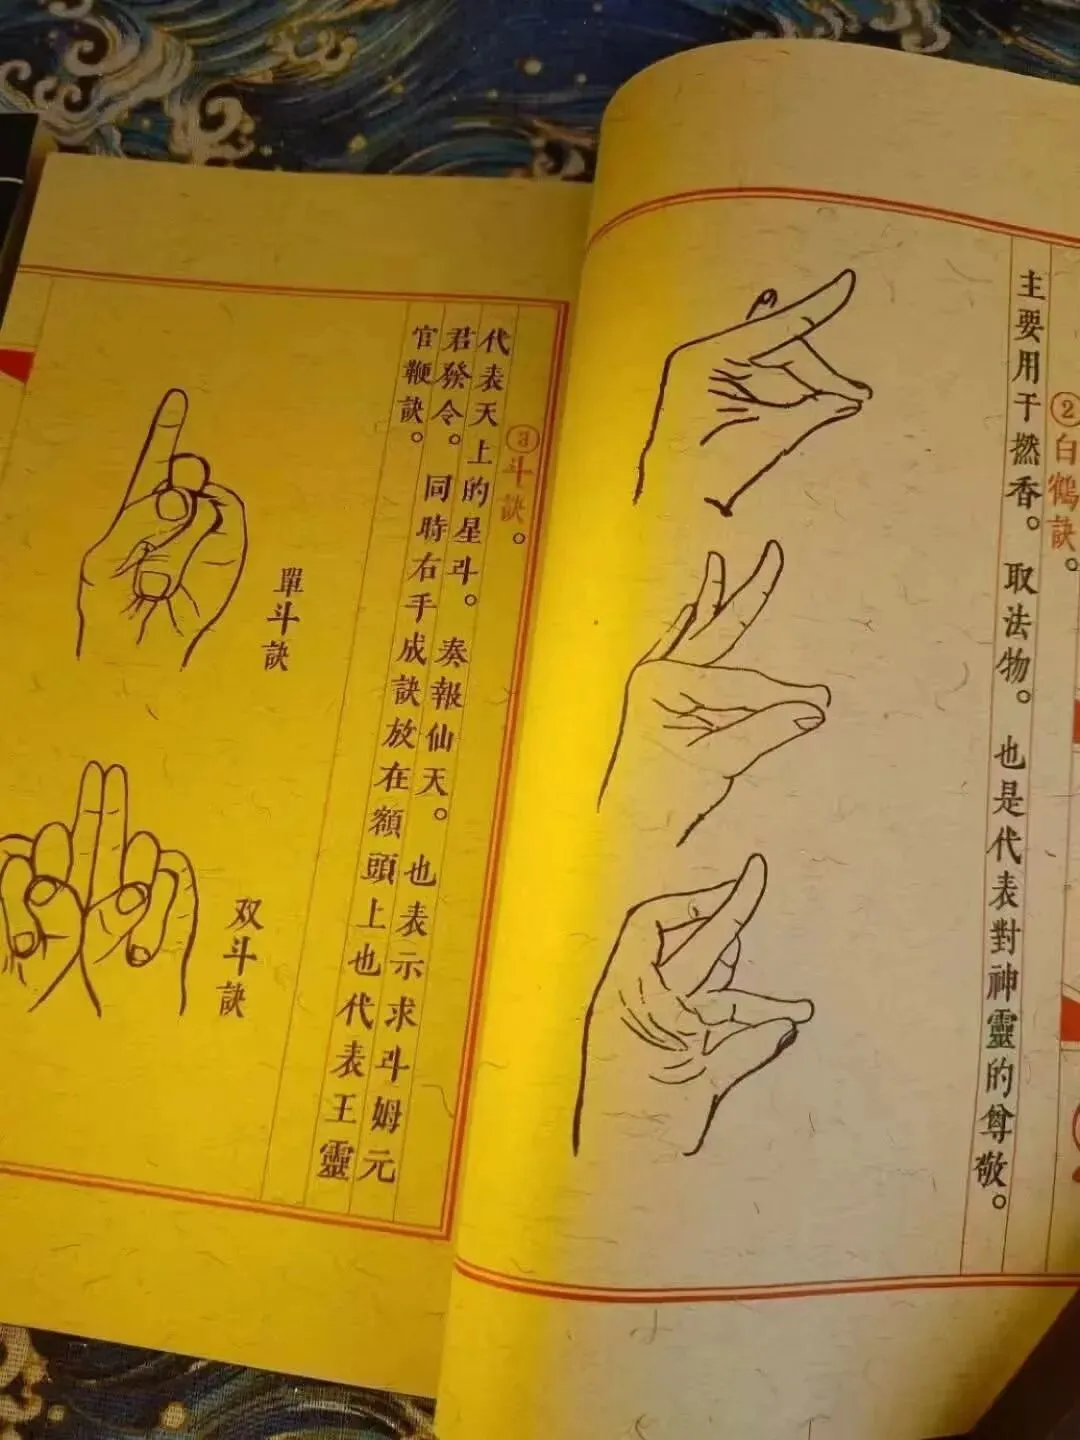 ②白鶴訣。
主要用于撚香。取法物。也是代表對神靈的尊敬。
③斗訣。
代表天上的星斗。奏報仙天。也表示求斗姆元
君發令。同時右手成訣放在額頭上也代表王靈
官鞭訣。
單斗訣
双斗訣